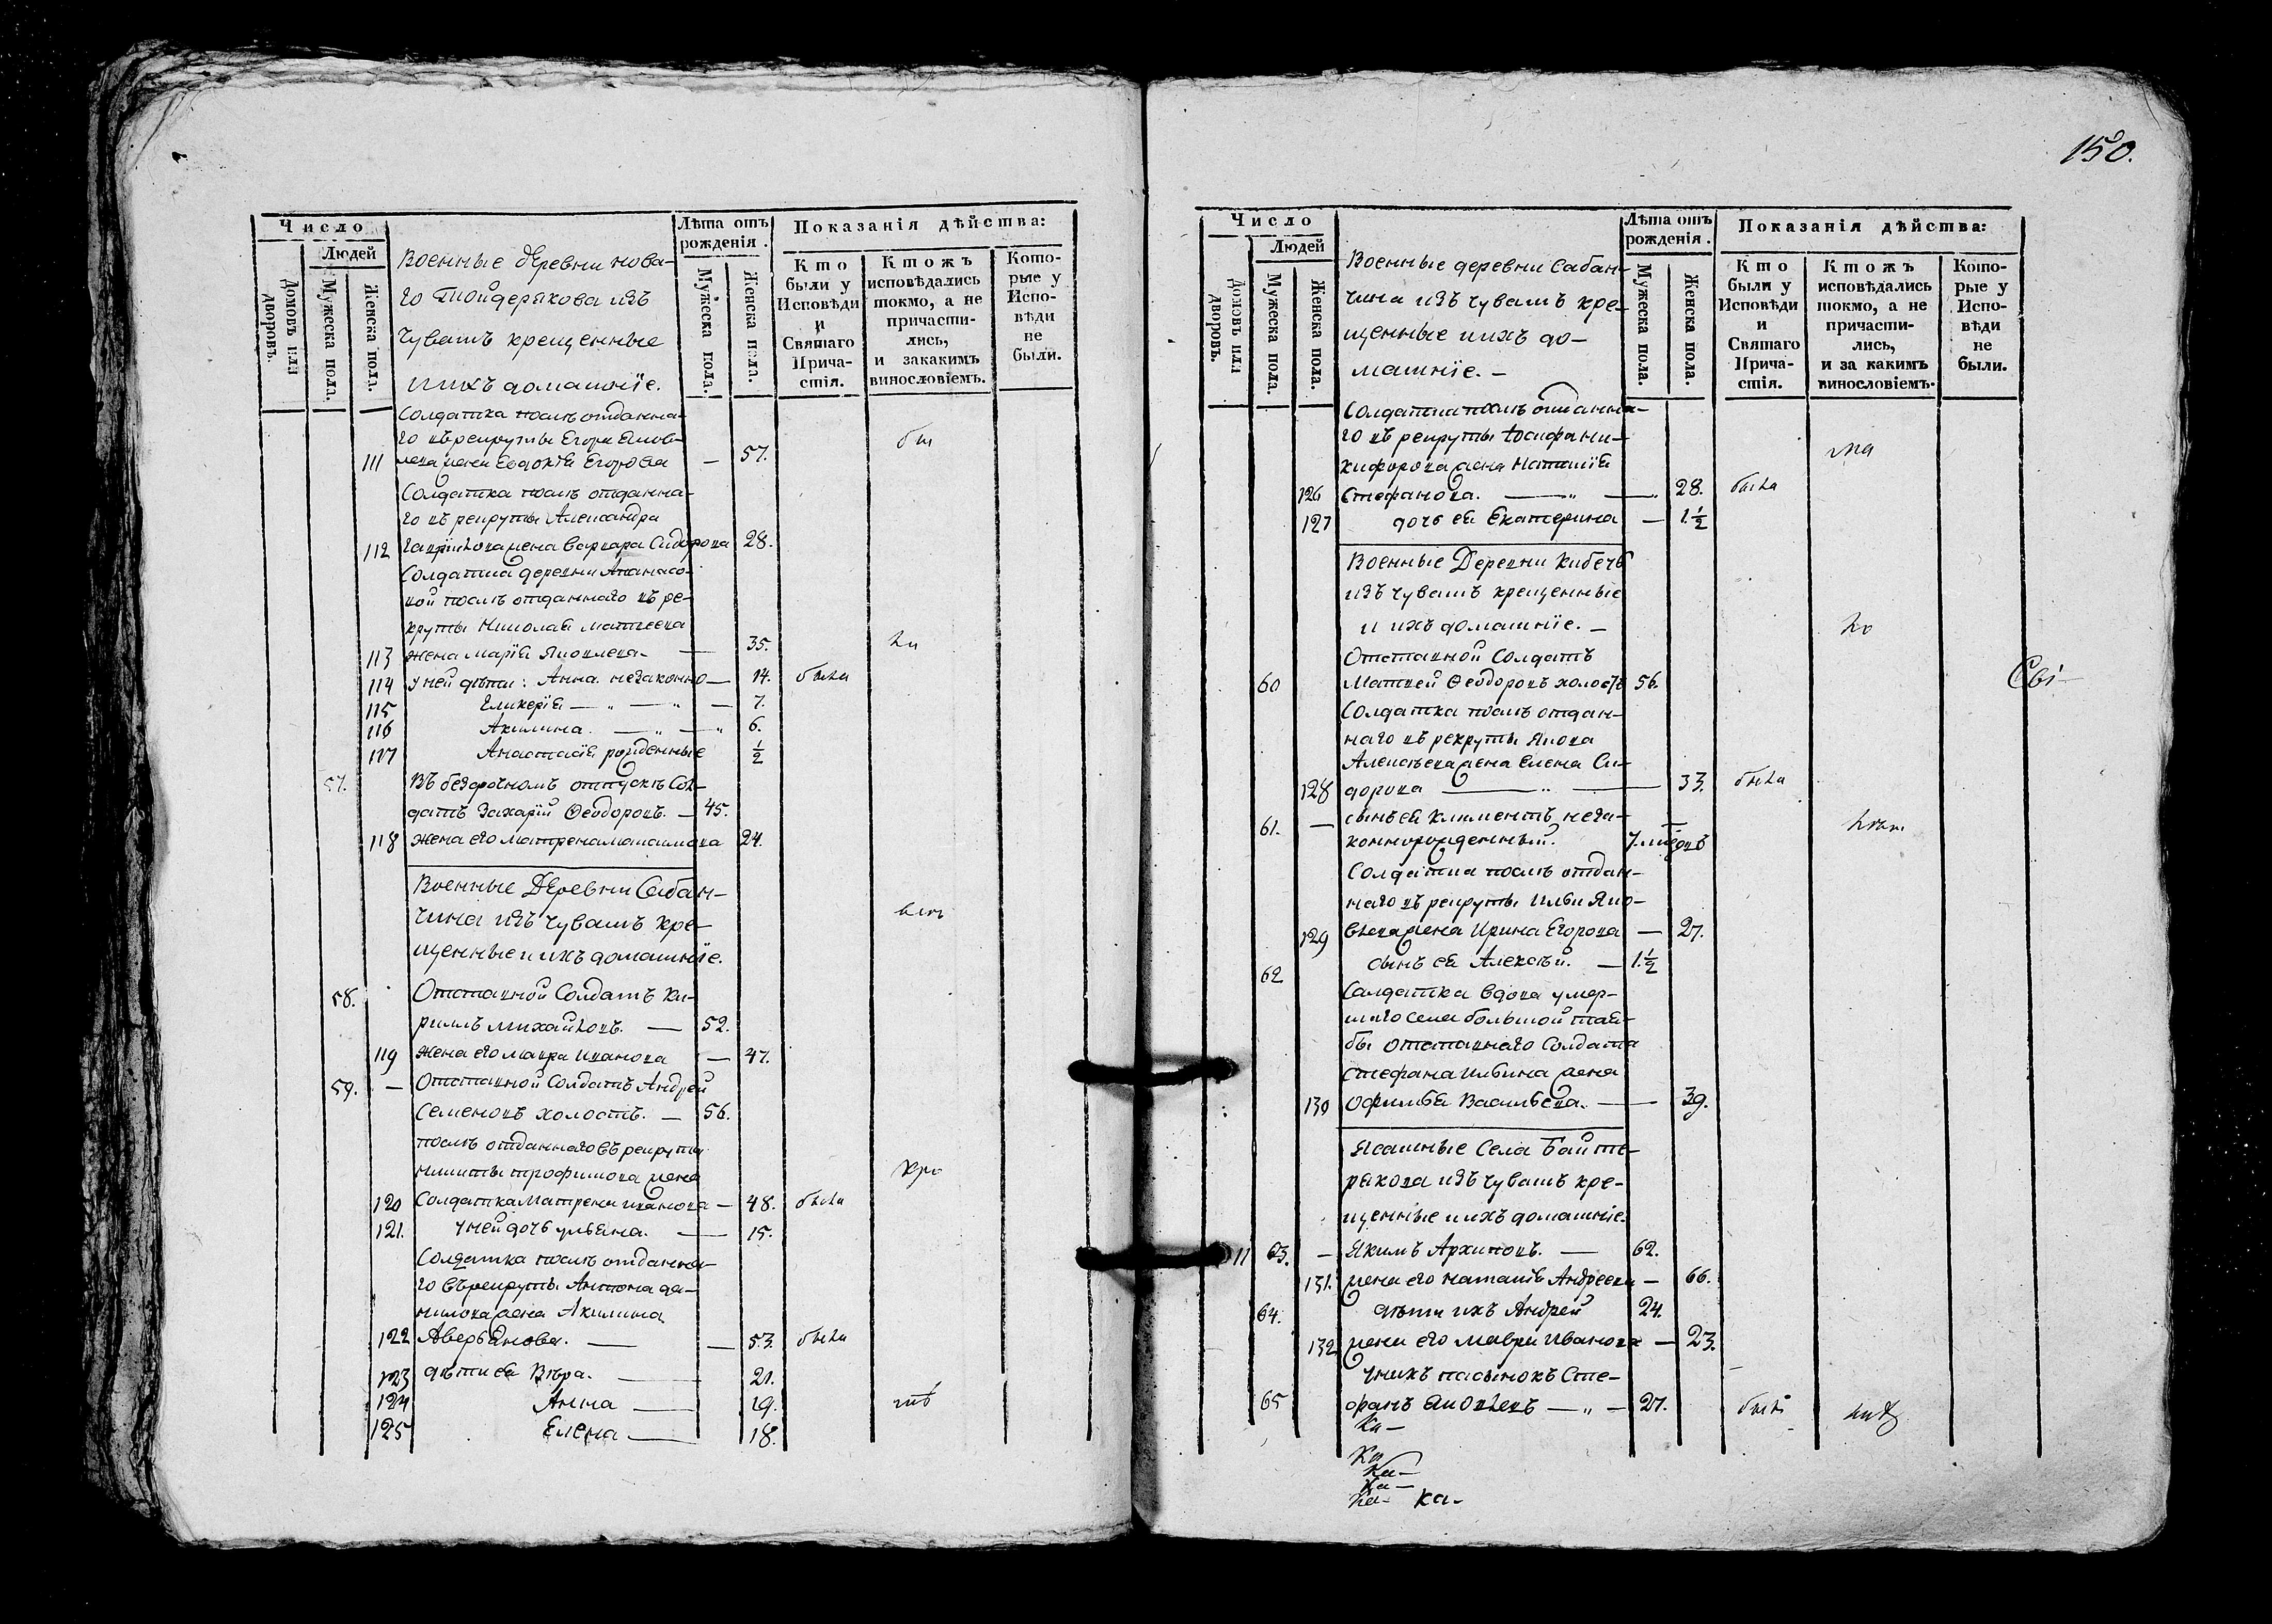 Число
Людей
Домовъ или дворовъ.
Мужеска пола.
Женска пола.
Военные деревни нова-
го Тойдерякова изъ
Чувашъ крещенные
и ихъ домашніе.
Лѣта отъ рожденія.
Мужеска пола.
Женска пола.
Показанія дѣйства:
Кто были у Исповѣди и Святаго Причастія.
Ктожъ исповѣдались токмо, а не причастились, и закакимъ винословіемъ.
Которые у Исповѣди не были.
Солдатка послѣ отданна-
го въ рекруты Егора Яков-
111 лева жена Евдокія Егорова — 57.
Солдатка послѣ отданна-
го въ рекруты Александра
112 Гаврилова жена Варвара Сидорова 28.
Солдатка деревни Апанасо-
вой послѣ отданнаго въ ре-
круты Николая Матвеева
113 жена Марія Яковлева — 35.
114 у ней дѣти: Анна незаконно — 14. была
115 Гликерія — „ — „ — 7.
116 Акилина. — „ — „ 6.
117 Анастасія рожденные ½
57. Въ безсрочномъ отпускѣ Сол-
датъ Захарій Ѳеодоровъ. — 45.
118 жена его Матрена Максимова 24.
Военные Деревни Сабан-
чина изъ Чувашъ кре-
щенные и ихъ домашніе.
58. Отставной Солдатъ Ки-
риллъ Михайловъ. — 52.
119 жена его Мавра Иванова — 47.
59. — Отставной Солдатъ Андрей
Семеновъ холостъ. — 56.
послѣ отданнаго въ рекруты
Никиты Трофимова жена
120 Солдатка Матрена Иванова — 48. была
121. у ней дочь Ульяна. — 15.
Солдатка послѣ отданна-
го въ рекруты Антона Да-
нилова жена Акилина
122 Аверьянова. — — 53. была
123 дѣти ея Вѣра. — 21.
124 Анна — 19.
125 Елена — 18.
150.
Число
Людей
Домовъ или дворовъ.
Мужеска пола.
Женска пола.
Военные деревни Сабан-
чина изъ Чувашъ кре-
щенные и ихъ до-
машніе. —
Лѣта отъ рожденія.
Мужеска пола.
Женска пола.
Показанія дѣйства:
Кто были у Исповѣди и Святаго Причастія.
Ктожъ исповѣдались токмо, а не причастились, и за какимъ винословіемъ.
Которые у Исповѣди не были.
Солдатка послѣ отданна-
го въ рекруты Іосифа Ни-
кифорова жена Наталія
126 Стефанова. — „ — 28. была
127 дочь ея Екатерина — 1.½
Военные Деревни Кибечь
изъ Чувашъ крещенные
и ихъ домашніе. —
Отставной Солдатъ
60 Матвей Ѳеодоровъ холостъ 56.
Солдатка послѣ отдан-
наго въ рекруты Якова
Алексѣева жена Елена Си-
128 дорова — „ — 33. была
61. — сынъ ея Климентъ неза-
коннорожденный.
Солдатка послѣ отдан-
наго въ рекруты Ильи Яко-
129 влева жена Ирина Егорова — 27.
62 сынъ ея Алексѣй. — 1.½
Солдатка вдова умер-
шаго села большой Тая-
бы отставнаго Солдата
Стефана Ильина жена
130 Офимья Васильева. — 39.
Ясашные Села Байте-
рякова изъ Чувашъ кре-
щенные и ихъ домашніе.
11 63. — Якимъ Архиповъ. — 62.
131. жена его Наталія Андреева — 66.
64. дѣти ихъ Андрей 24.
132 жена его Мавра Иванова — 23.
у нихъ пасынокъ Сте-
65 фанъ Яковлевъ — „ — 27.
Ка-
Ка
Ка-
Ка-
Ка- Ка-